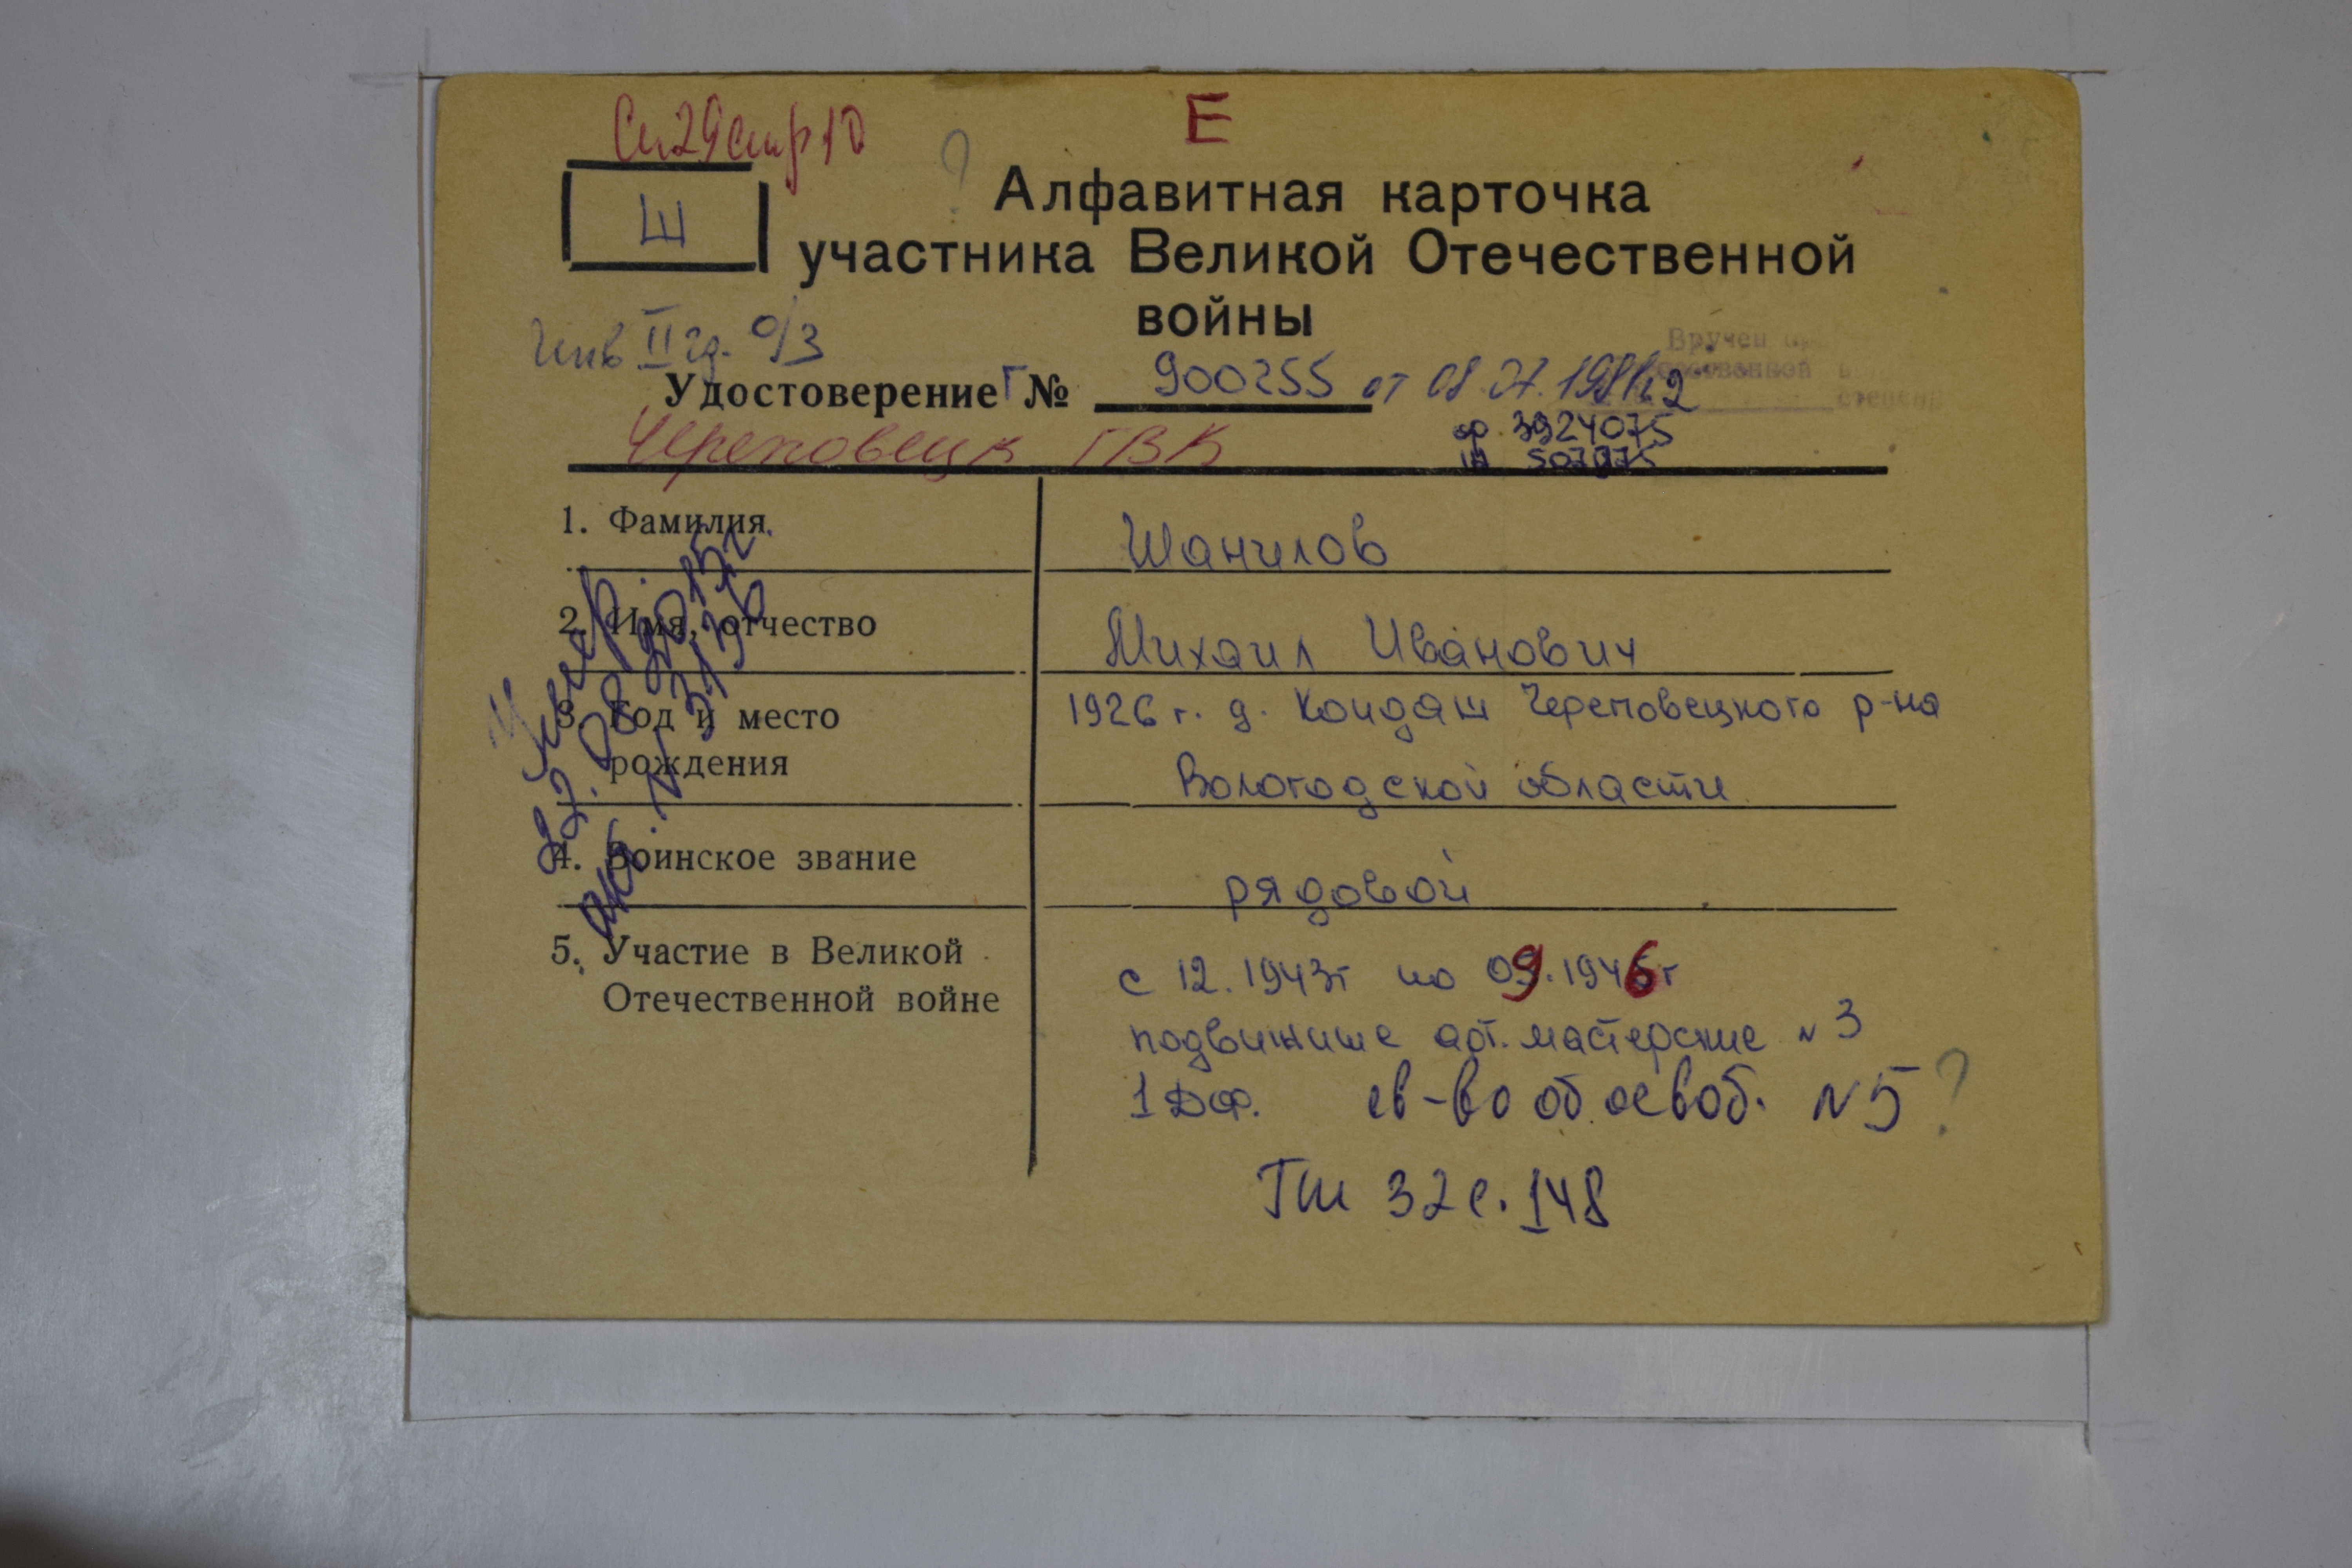 Сп 29 стр 10
Е
?
Ш
Алфавитная карточка
участника Великой Отечественной
войны
Инв II гр. о/з
Вручен
степени
Удостоверение Г № 900255 от 08.07.1981г.
ор. 3924075
Череповецк ГВК
1. Фамилия Шанилов
2. Имя, отчество Михаил Иванович
3. Год и место рождения 1926 г. д. Кондаш Череповецкого р-на
Вологодской области
4. Воинское звание рядовой
5. Участие в Великой Отечественной войне с 12.1943г по 09.1946г
подвижные арт. мастерские N 3
1 ДФ. св-во об освоб. N 5 ?
ГШ 32 с. 148
Умер
22.08.2015г.
акт. N 3136